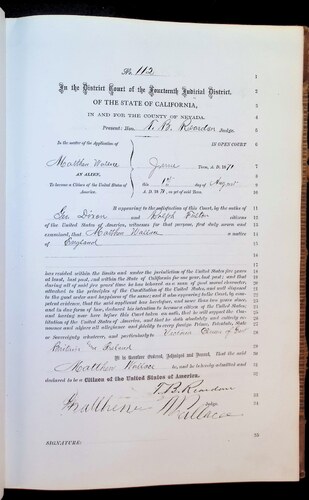 No 112
In the District Court of the Fourteenth Judicial District,
OF THE STATE OF CALIFORNIA,
IN AND FOR THE COUNTY OF NEVADA.
Present: Hon. T. B. Reardon Judge.
In the matter of the Application of
IN OPEN COURT
Matthew Wallace
June Term, A. D. 1871
AN ALIEN,
this 1st day of August
To become a Citizen of the United States of America.
A. D. 1871, as yet of said Term
It appearing to the satisfaction of this Court, by the oaths of
Geo Dixon and Ralph citizens
of the United States of America, witnesses for that purpose, first duly sworn
and examined, that Matthew Wallace a native
of England
has resided within the limits and under the jurisdiction of the United States five years
at least, last past, and within the State of California for one year, last past; and that
during all of said five years' time he has behaved as a man of good moral character,
attached to the principles of the Constitution of the United States, and well disposed
to the good order and happiness of the same; and it also appearing to the Court, by competent
evidence, that the said applicant has heretofore, and more than two years since,
and in due form of law, declared his intention to become a citizen of the United States;
and having now here before this Court, taken an oath, that he will support the Constitution
of the United States of America, and that he doth absolutely and entirely renounce
and abjure all allegiance and fidelity to every foreign Prince, Potentate, State
or Sovereignty whatever, and particularly to Victoria Queen of Great
Britain and Ireland
It is therefore Ordered, Adjudged and Decreed, That the said
Matthew Wallace be, and he hereby is, admitted and
declared to be a Citizen of the United States of America.
T. B. Reardon
Judge.
Matthew Wallace
SIGNATURE: